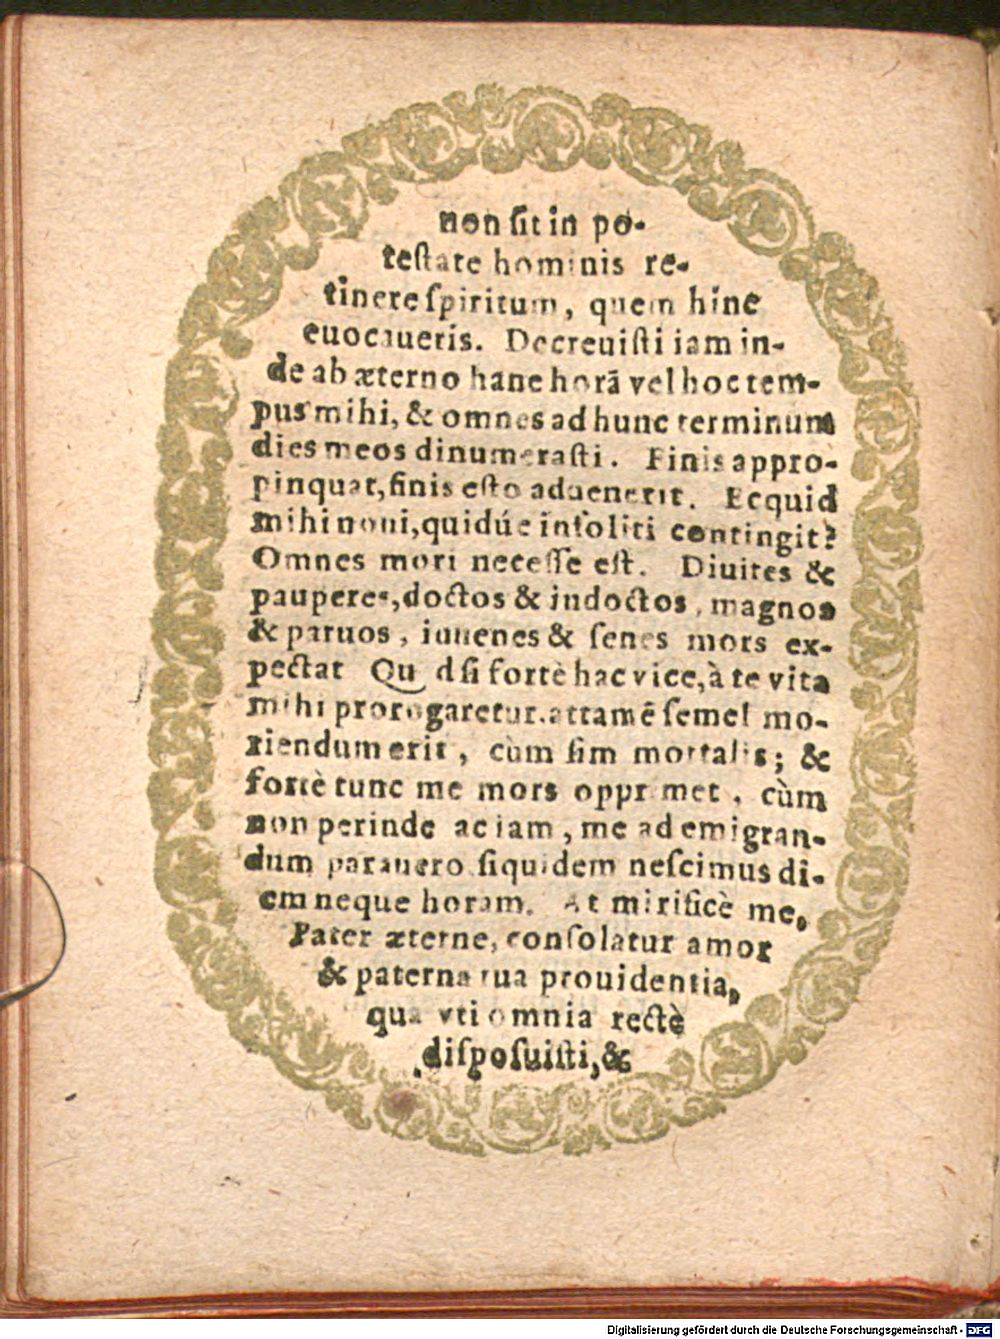 non ſit in po-
teſtate hominis re-
tinere ſpiritum, quem hinc
euocaueris. Decreuiſti iam in-
de ab æterno hanc horā vel hoc tem-
pus mihi, & omnes ad hunc terminum
dies meos dinumeraſti. Finis appro-
pinquat, finis eſto aduenerit. Ecquid
mihi noui, quidúe inſoliti contingit?
Omnes mori neceſſe eſt. Diuites &
pauperes, doctos & indoctos, magnos
& paruos, iuuenes & ſenes mors ex-
pectat Quodſi fortè hac vice, à te vita
mihi prorogaretur. attamē ſemel mo-
riendum erit, cùm ſim mortalis; &
fortè tunc me mors opprimet, cùm
non perinde ac iam, me ad emigran-
dum parauero. ſiquidem neſcimus di-
em neque horam. At mirificè me,
Pater æterne, conſolatur amor
& paterna tua prouidentia,
qua vti omnia rectè
diſpoſuiſti, &
Digitalisierung gefördert durch die Deutsche Forschungsgemeinschaft - DFG